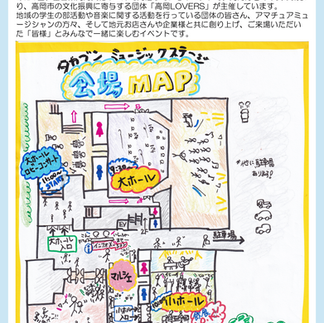 り、高岡市の文化振興に寄与する団体「高岡LOVERS」が主催しています。
地域の学生の部活動や音楽に関する活動を行っている団体の皆さん、アマチュアミュ
ージシャンの方々、そして地元お店さんや企業様と共に創り上げ、ご来場いただい
た「皆様」とみんなで一緒に楽しむイベントです。
タカブン ミュージックステージ
会場 MAP
大ホール
ロビーコンサート
大ホール
駐車場
大ホール
入口
インフォメーション
駐車場
マルシェ
小ホール